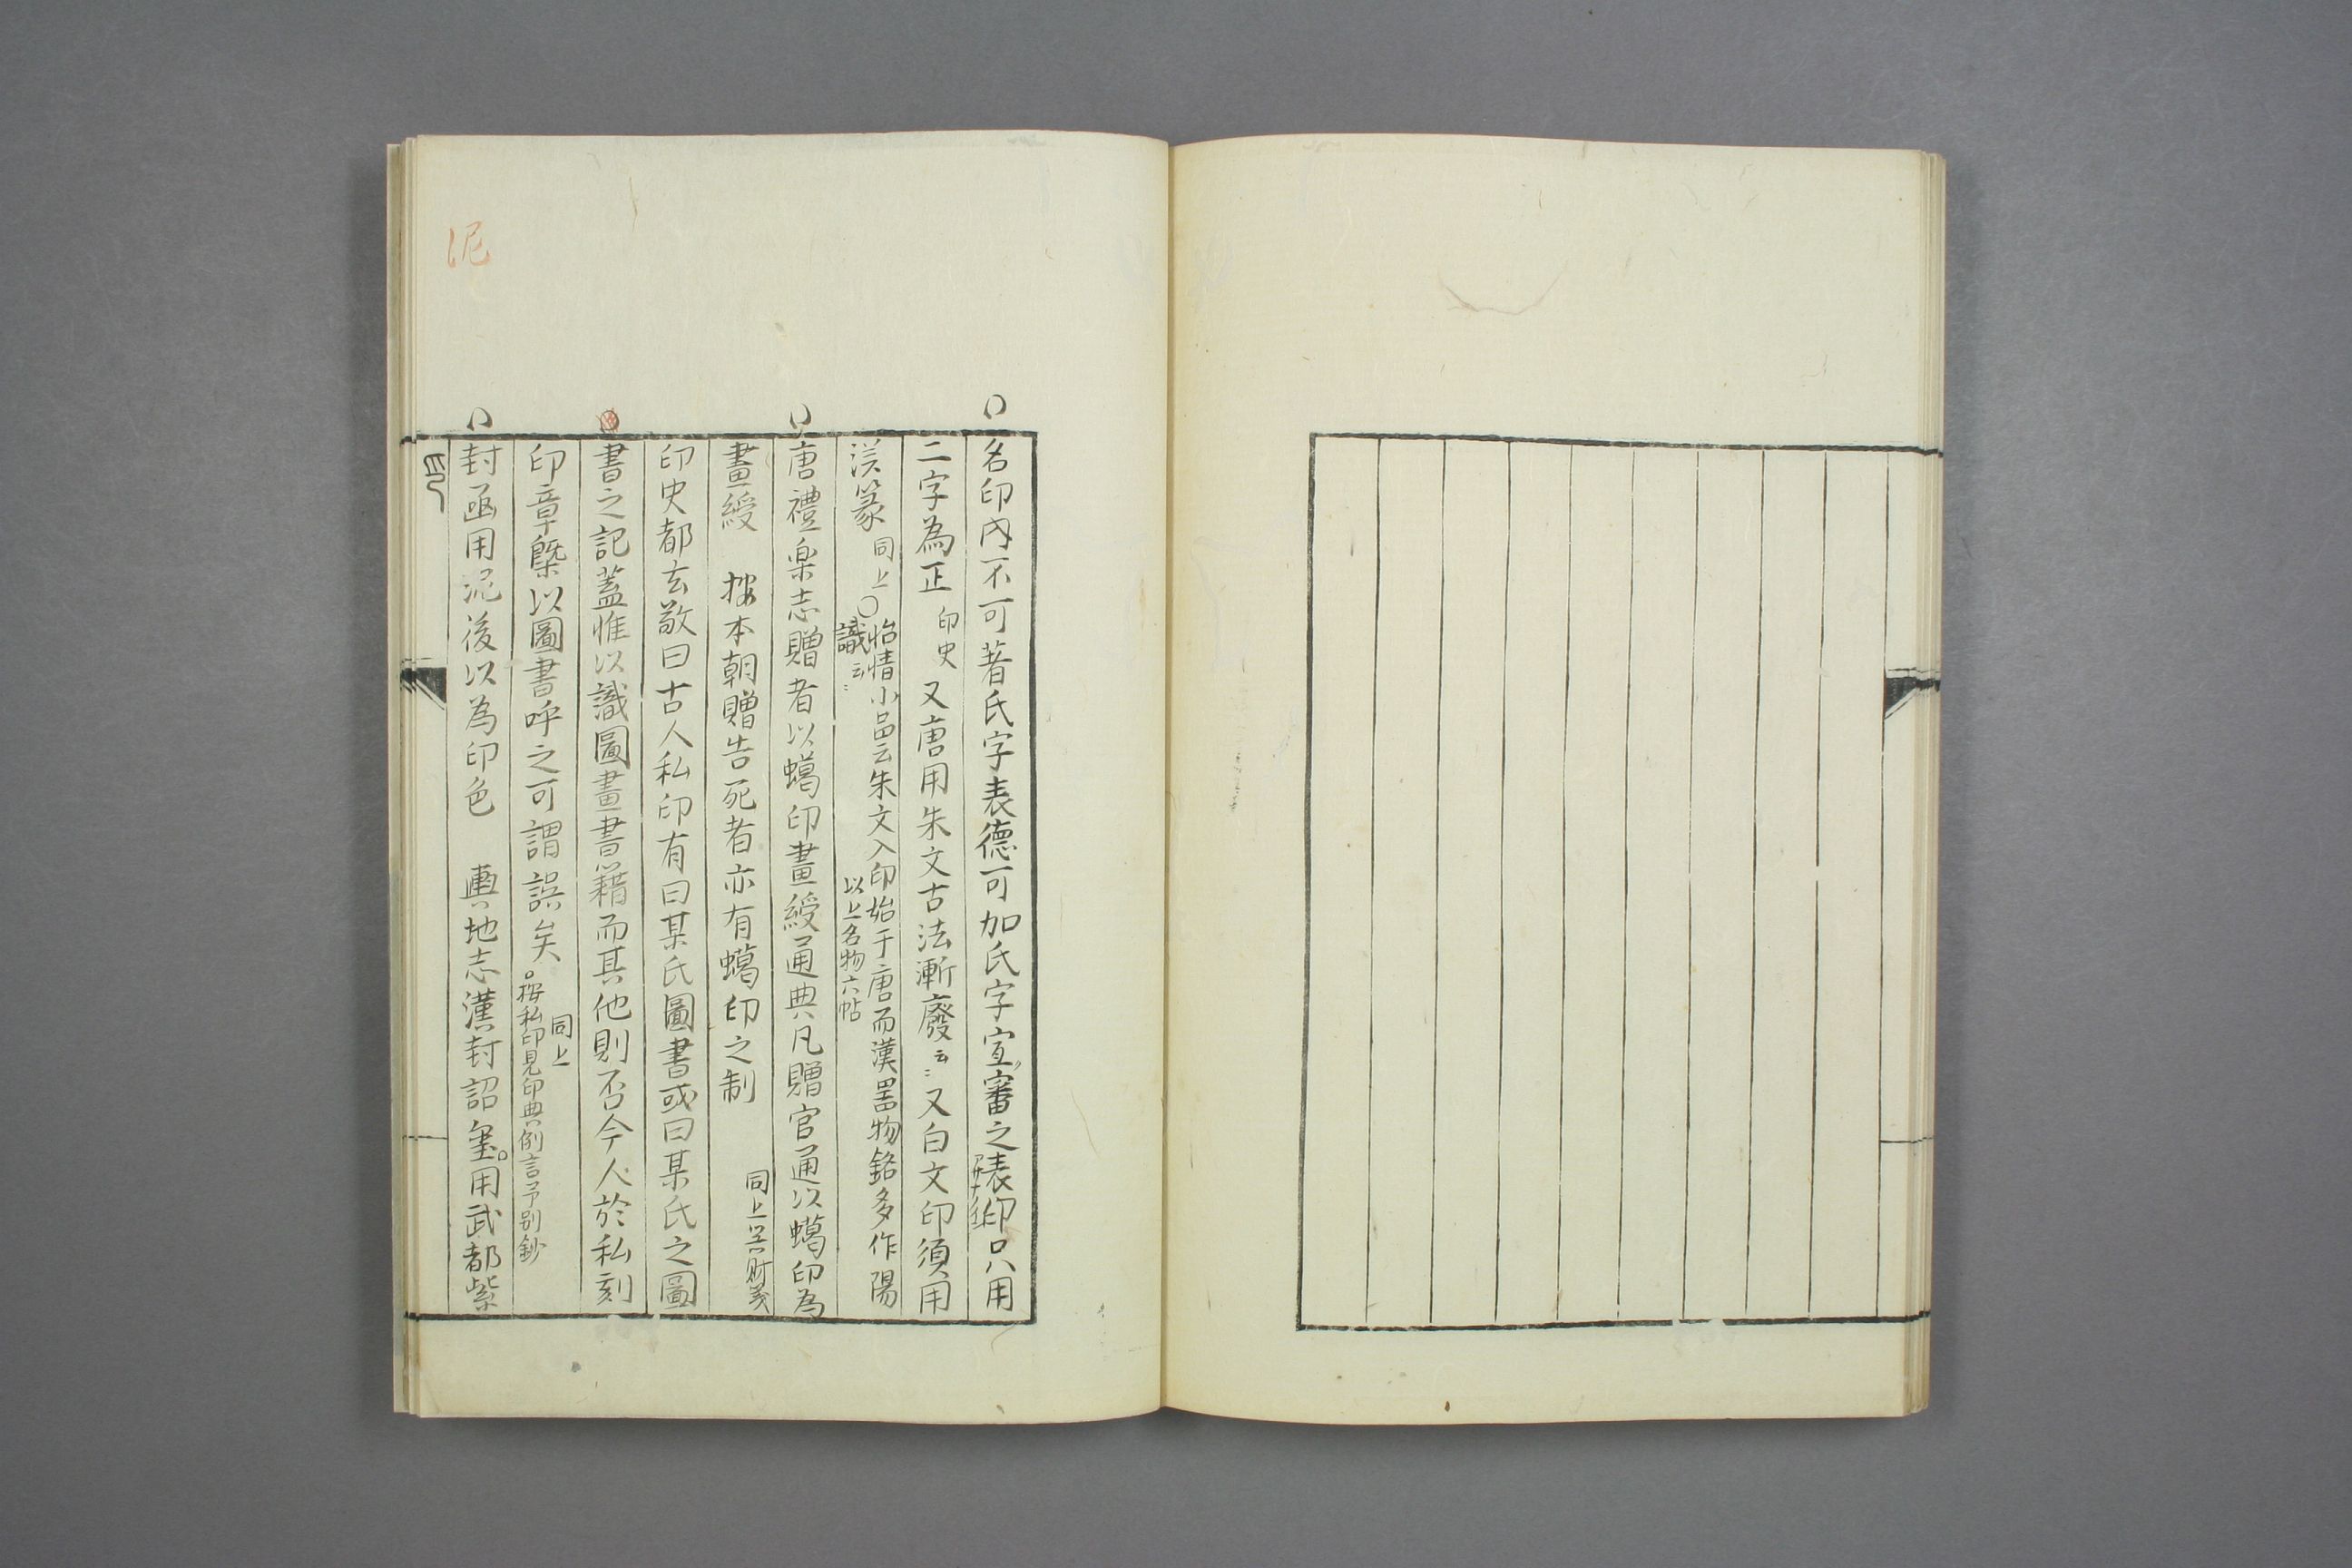 名印内不可著氏字表德可加氏字宜審之表字印只用
二字為正 印史 又唐用朱文古法漸廢云〻又白文印須用
漢篆 同上〇怡情小品云朱文入印始于唐而漢器物銘多作陽
識云〻 以上名物六帖
唐禮楽志贈者以蠟印畫綬通典凡贈官通以蠟印為
畫綬 按本朝贈告死者亦有蠟印之制 同上
印史都玄敬曰古人私印有曰某氏圖書或曰某氏之圖
書之記蓋惟以識圖畫書籍而其他則否今人於私刻
印章槩以圖書呼之可謂誤矣 同上
按私印見印典例言予別鈔
封函用泥後以為印色 輿地志漢封詔璽用武都紫
印
泥